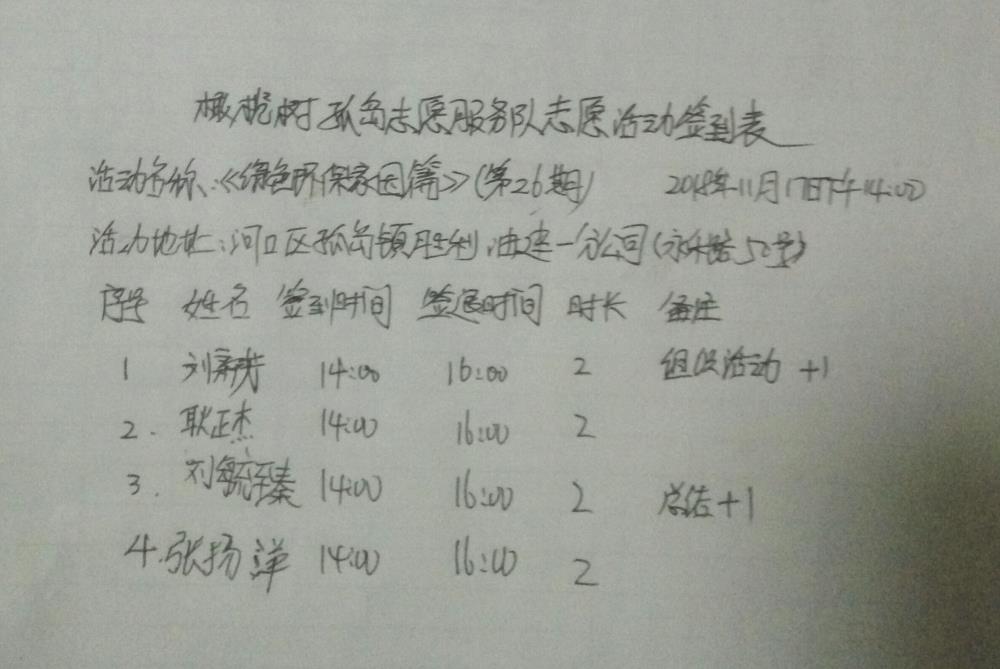 橄榄树孤岛志愿服务队志愿活动签到表
活动名称:《绿色环保家园篇》(第26期) 2018年11月17日下午14:00
活动地址:河口区孤岛镇胜利油建一分公司(永乐路50号)
序号 姓名 签到时间 签退时间 时长 备注
1 刘新芳 14:00 16:00 2 组织活动 +1
2. 耿正杰 14:00 16:00 2
3. 刘毓臻 14:00 16:00 2 总结+1
4. 张扬洋 14:00 16:00 2